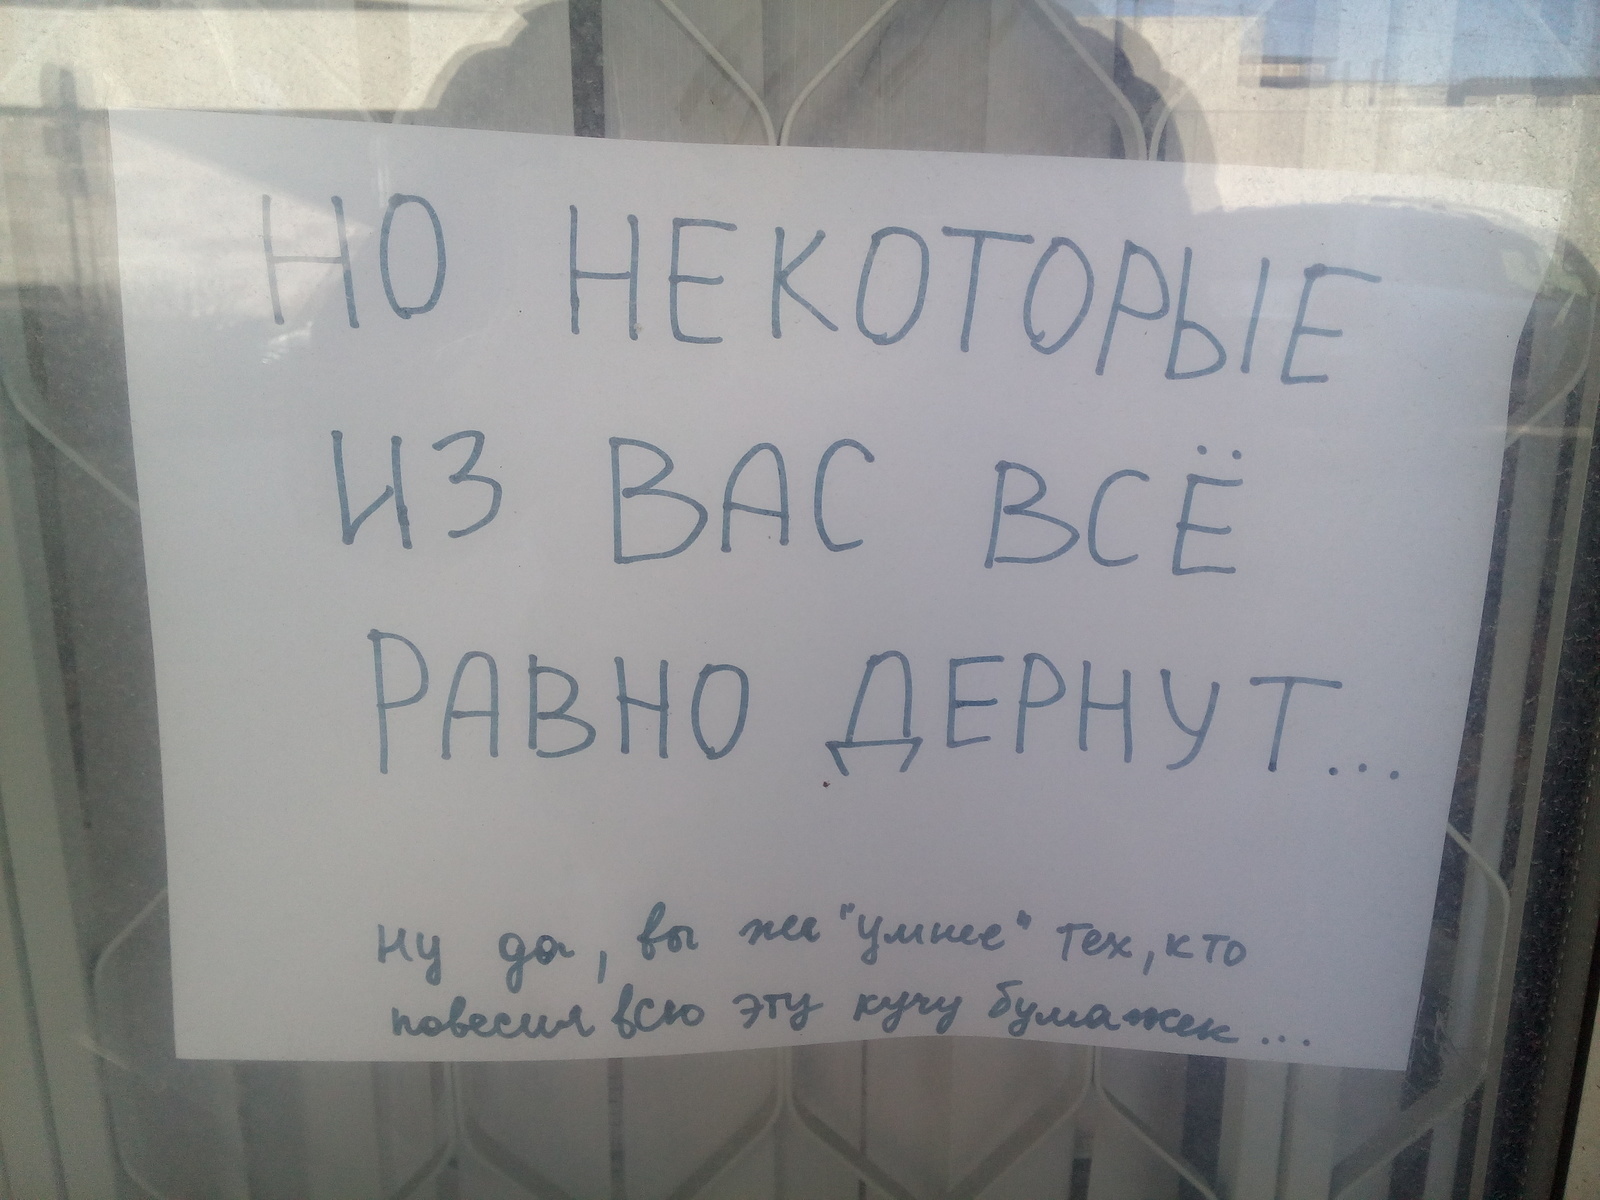 НО НЕКОТОРЫЕ
ИЗ ВАС ВСЁ
РАВНО ДЕРНУТ...
Ну да, вы же "умнее" тех, кто
повесил всю эту кучу бумажек...